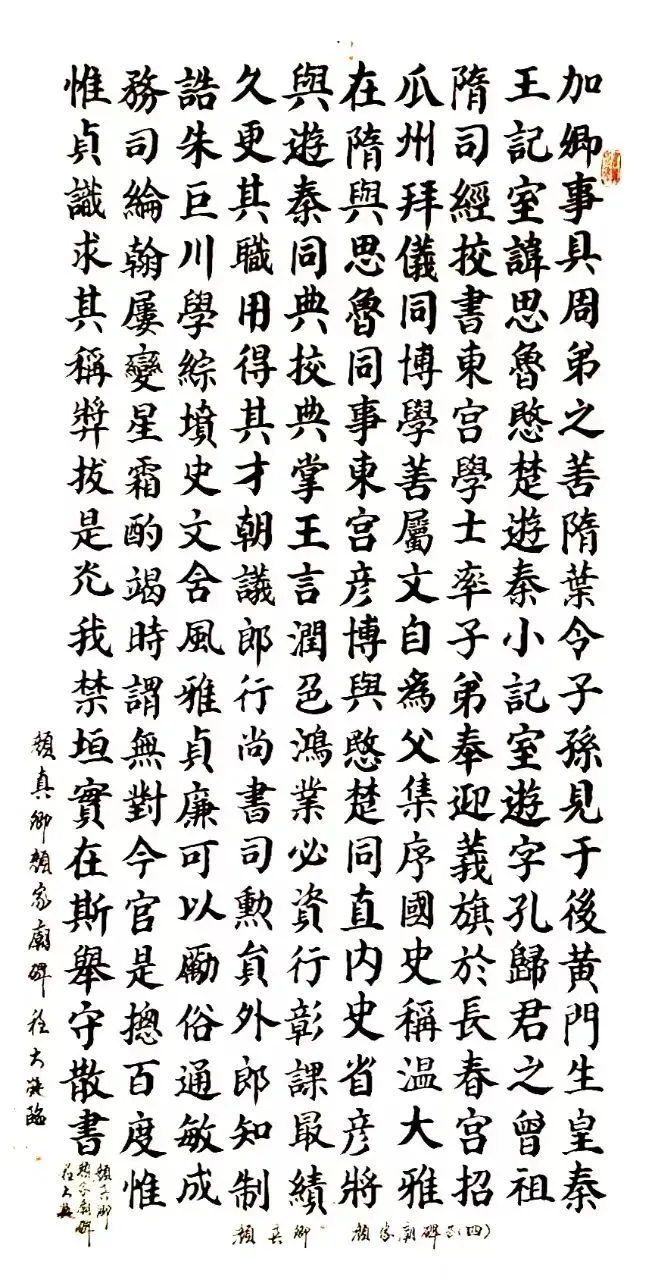 加卿事具周弟之善隋葉令子孫見于後黃門生皇秦
王記室諱思魯愍楚遊秦小記室遊字孔歸君之曾祖
隋司經挍書東宮學士率子弟奉迎義旗於長春宮招
瓜州拜儀同博學善屬文自爲父集序國史稱溫大雅
在隋與思魯同事東宮彥博與愍楚同直內史省彥將
與遊秦同典挍典掌王言潤色鴻業必資行彰課最績
久更其職用得其才朝議郎行尚書司勳貟外郎知制
誥朱巨川學綜墳史文含風雅貞廉可以勵俗通敏成
務司綸翰屢變星霜酌竭時謂無對今官是摠百度惟
惟貞識求其稱弉拔是光我禁垣實在斯舉守散書
顏真卿顏家廟碑 程大臨
顏真卿
顏家廟碑
程大
顏真卿 顏家廟碑(四)